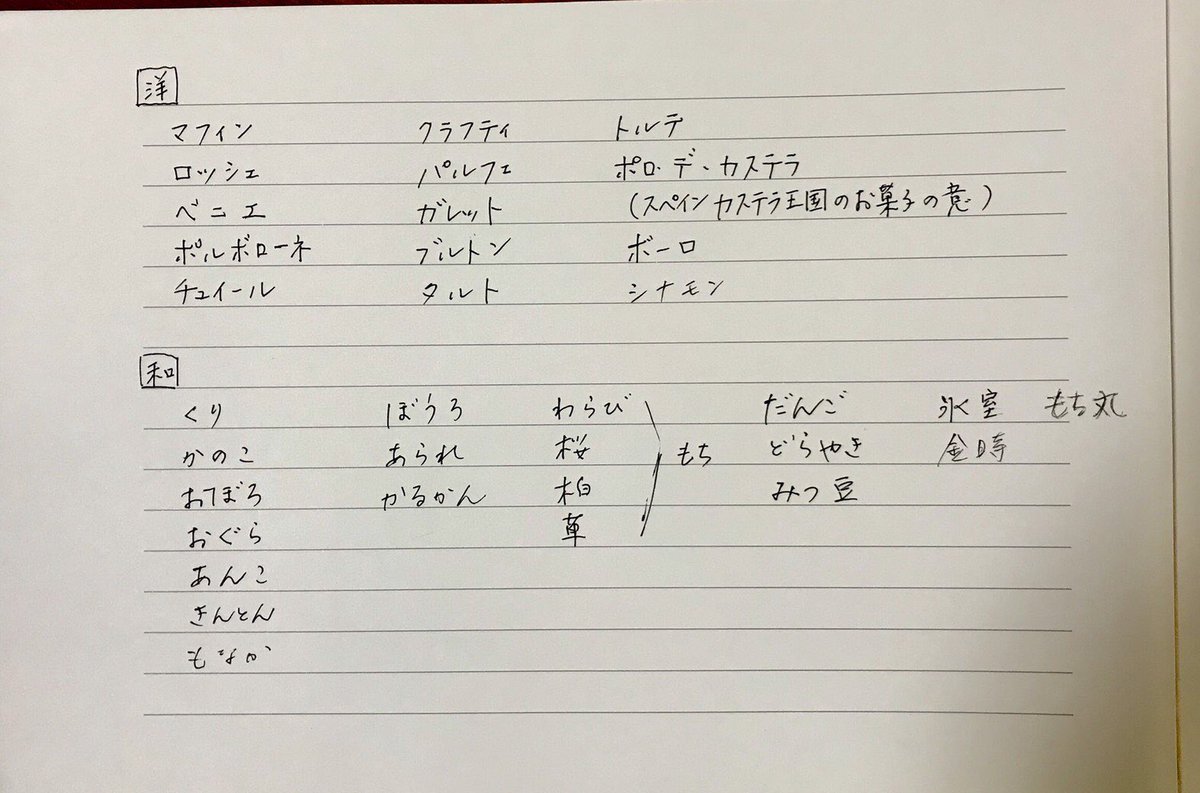 洋
マフィン クラフティ トルテ
ロッシェ パルフェ ポロ・デ・カステラ
ベニエ ガレット (スペインカステラ王国のお菓子の意)
ポルボローネ ブルトン ボーロ
チュイール タルト シナモン
和
くり ぼうろ わらび だんご 氷室 もち丸
かのこ あられ 桜 もち どらやき 金時
おぼろ かるかん 柏 みつ豆
おぐら 草
あんこ
きんとん
もなか